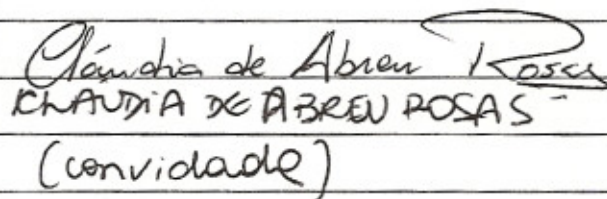 Cláudia de Abreu Rosas
CLAUDIA DE ABREU ROSAS
(convidade)